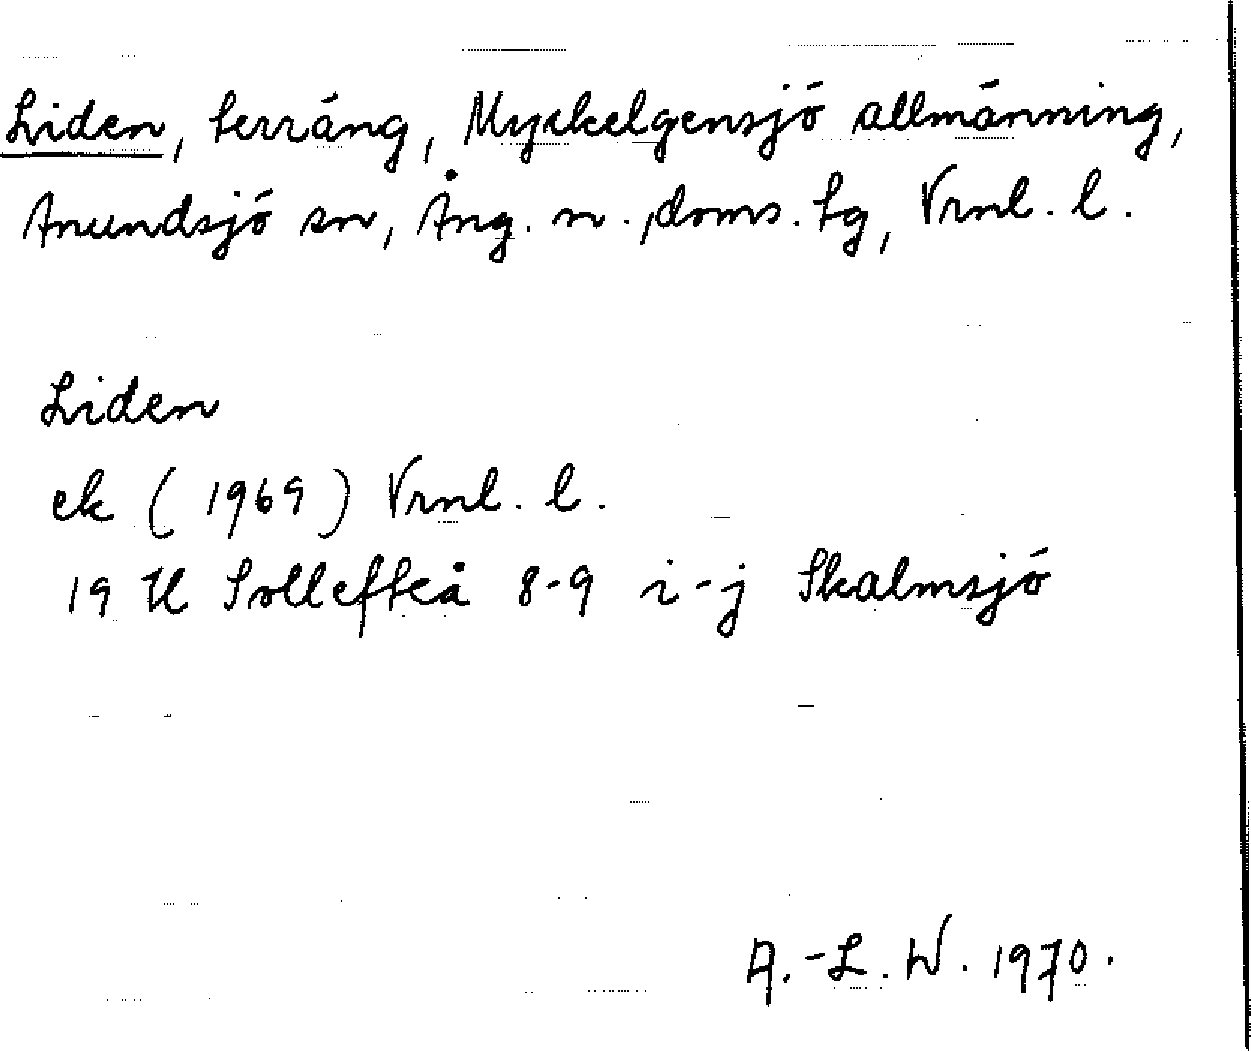 Liden, terräng, Myckelgensjö allmänning,
Anundsjö sn, Ång. n. doms. tg, Vrnl. l.
Liden
ek (1969) Vrnl. l.
19 H Sollefteå 8-9 i-j Skalmsjö
A.-L. W. 1970.